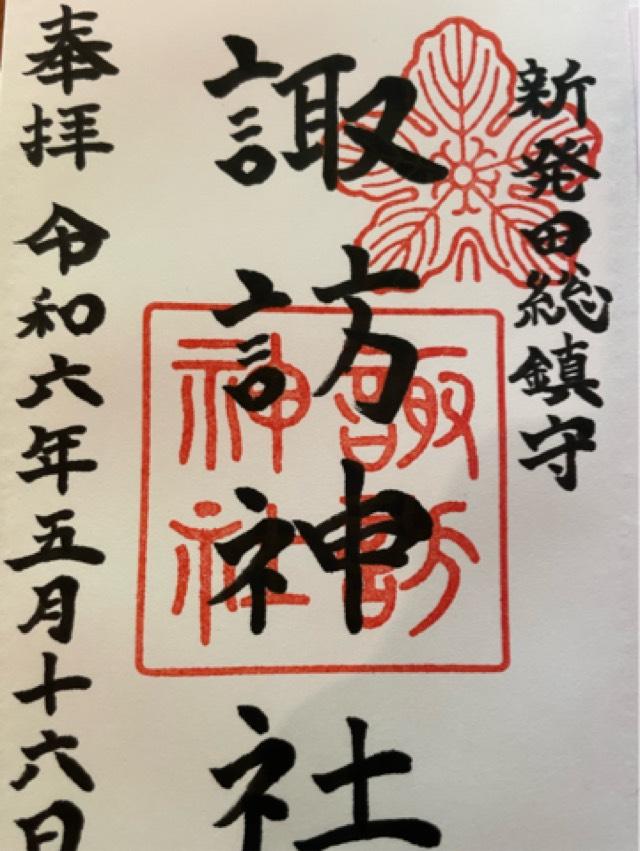 新発田総鎮守
諏訪神社
諏訪
神社
奉拝 令和六年五月十六日